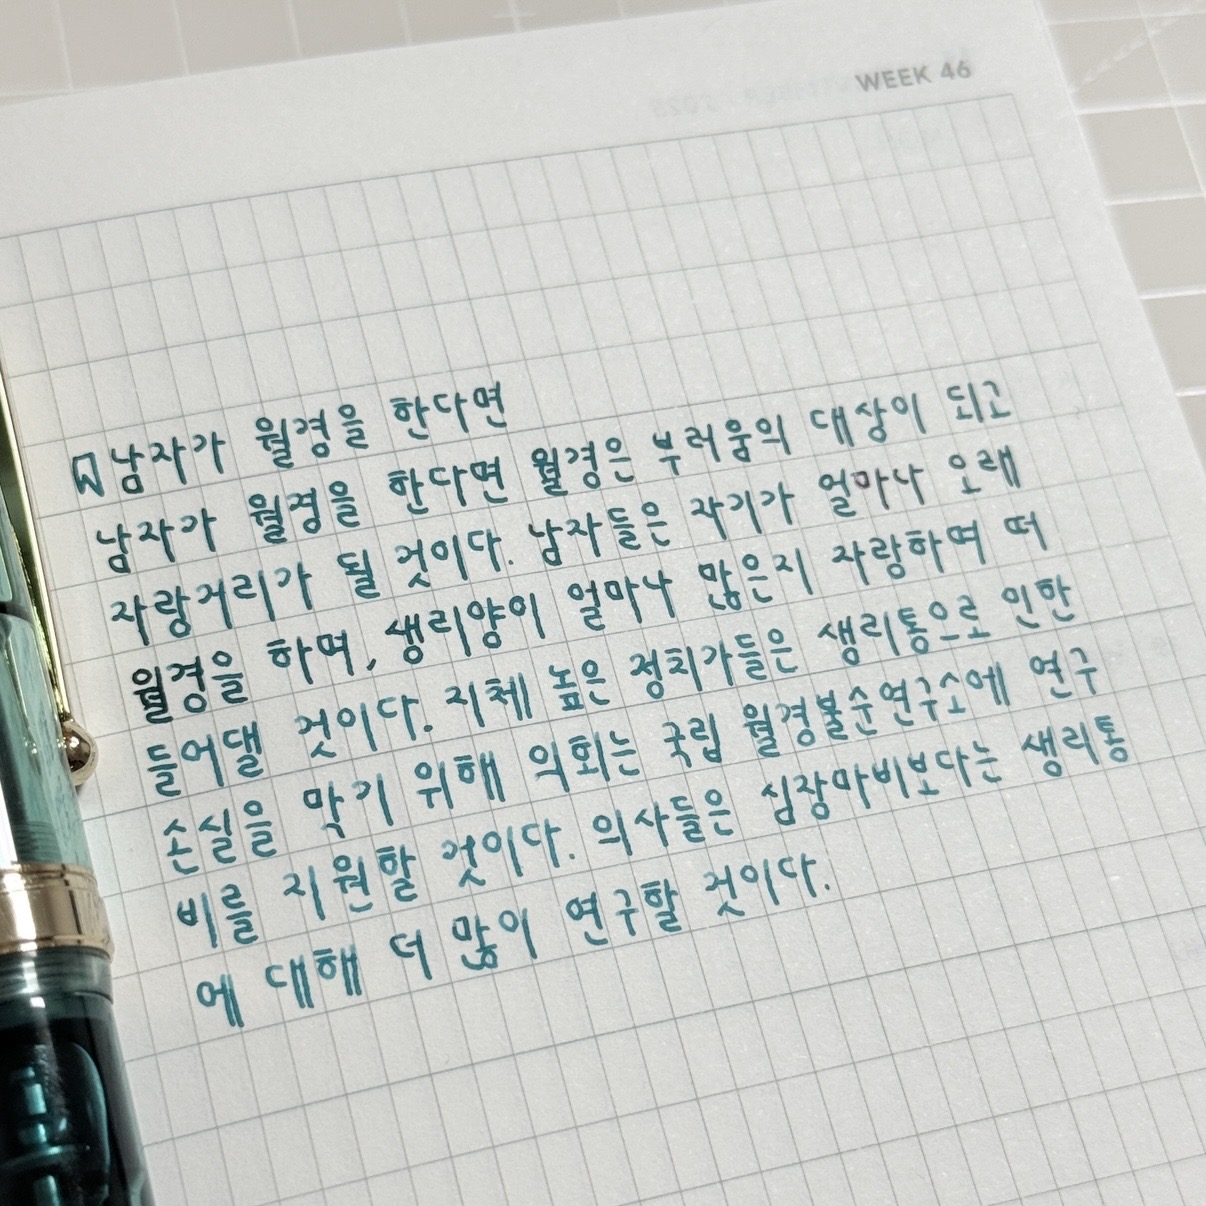 WEEK 46
남자가 월경을 한다면
남자가 월경을 한다면 월경은 부러움의 대상이 되고
자랑거리가 될 것이다. 남자들은 자기가 얼마나 오래
월경을 하며, 생리양이 얼마나 많은지 자랑하며 떠
들어댈 것이다. 지체 높은 정치가들은 생리통으로 인한
손실을 막기 위해 의회는 국립 월경불순연구소에 연구
비를 지원할 것이다. 의사들은 심장마비보다는 생리통
에 대해 더 많이 연구할 것이다.